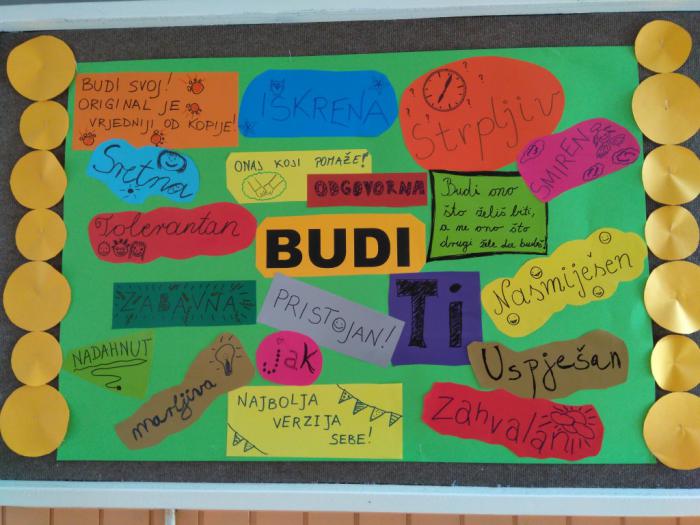 BUDI SVOJ!
ORIGINAL JE
VRJEDNIJI OD KOPIJE!
ISKRENA
Strpljiv
SMIRENA
Sretna
ONAJ KOJI POMAŽE!
ODGOVORNA
Budi ono
što želiš biti,
a ne ono što
drugi žele da budeš!
Tolerantan
BUDI
Nasmiješen
ZABAVNA
PRISTOJAN!
Ti
NADAHNUT
marljiva
Jak
Uspješan
NAJBOLJA
VERZIJA
SEBE!
Zahvalan